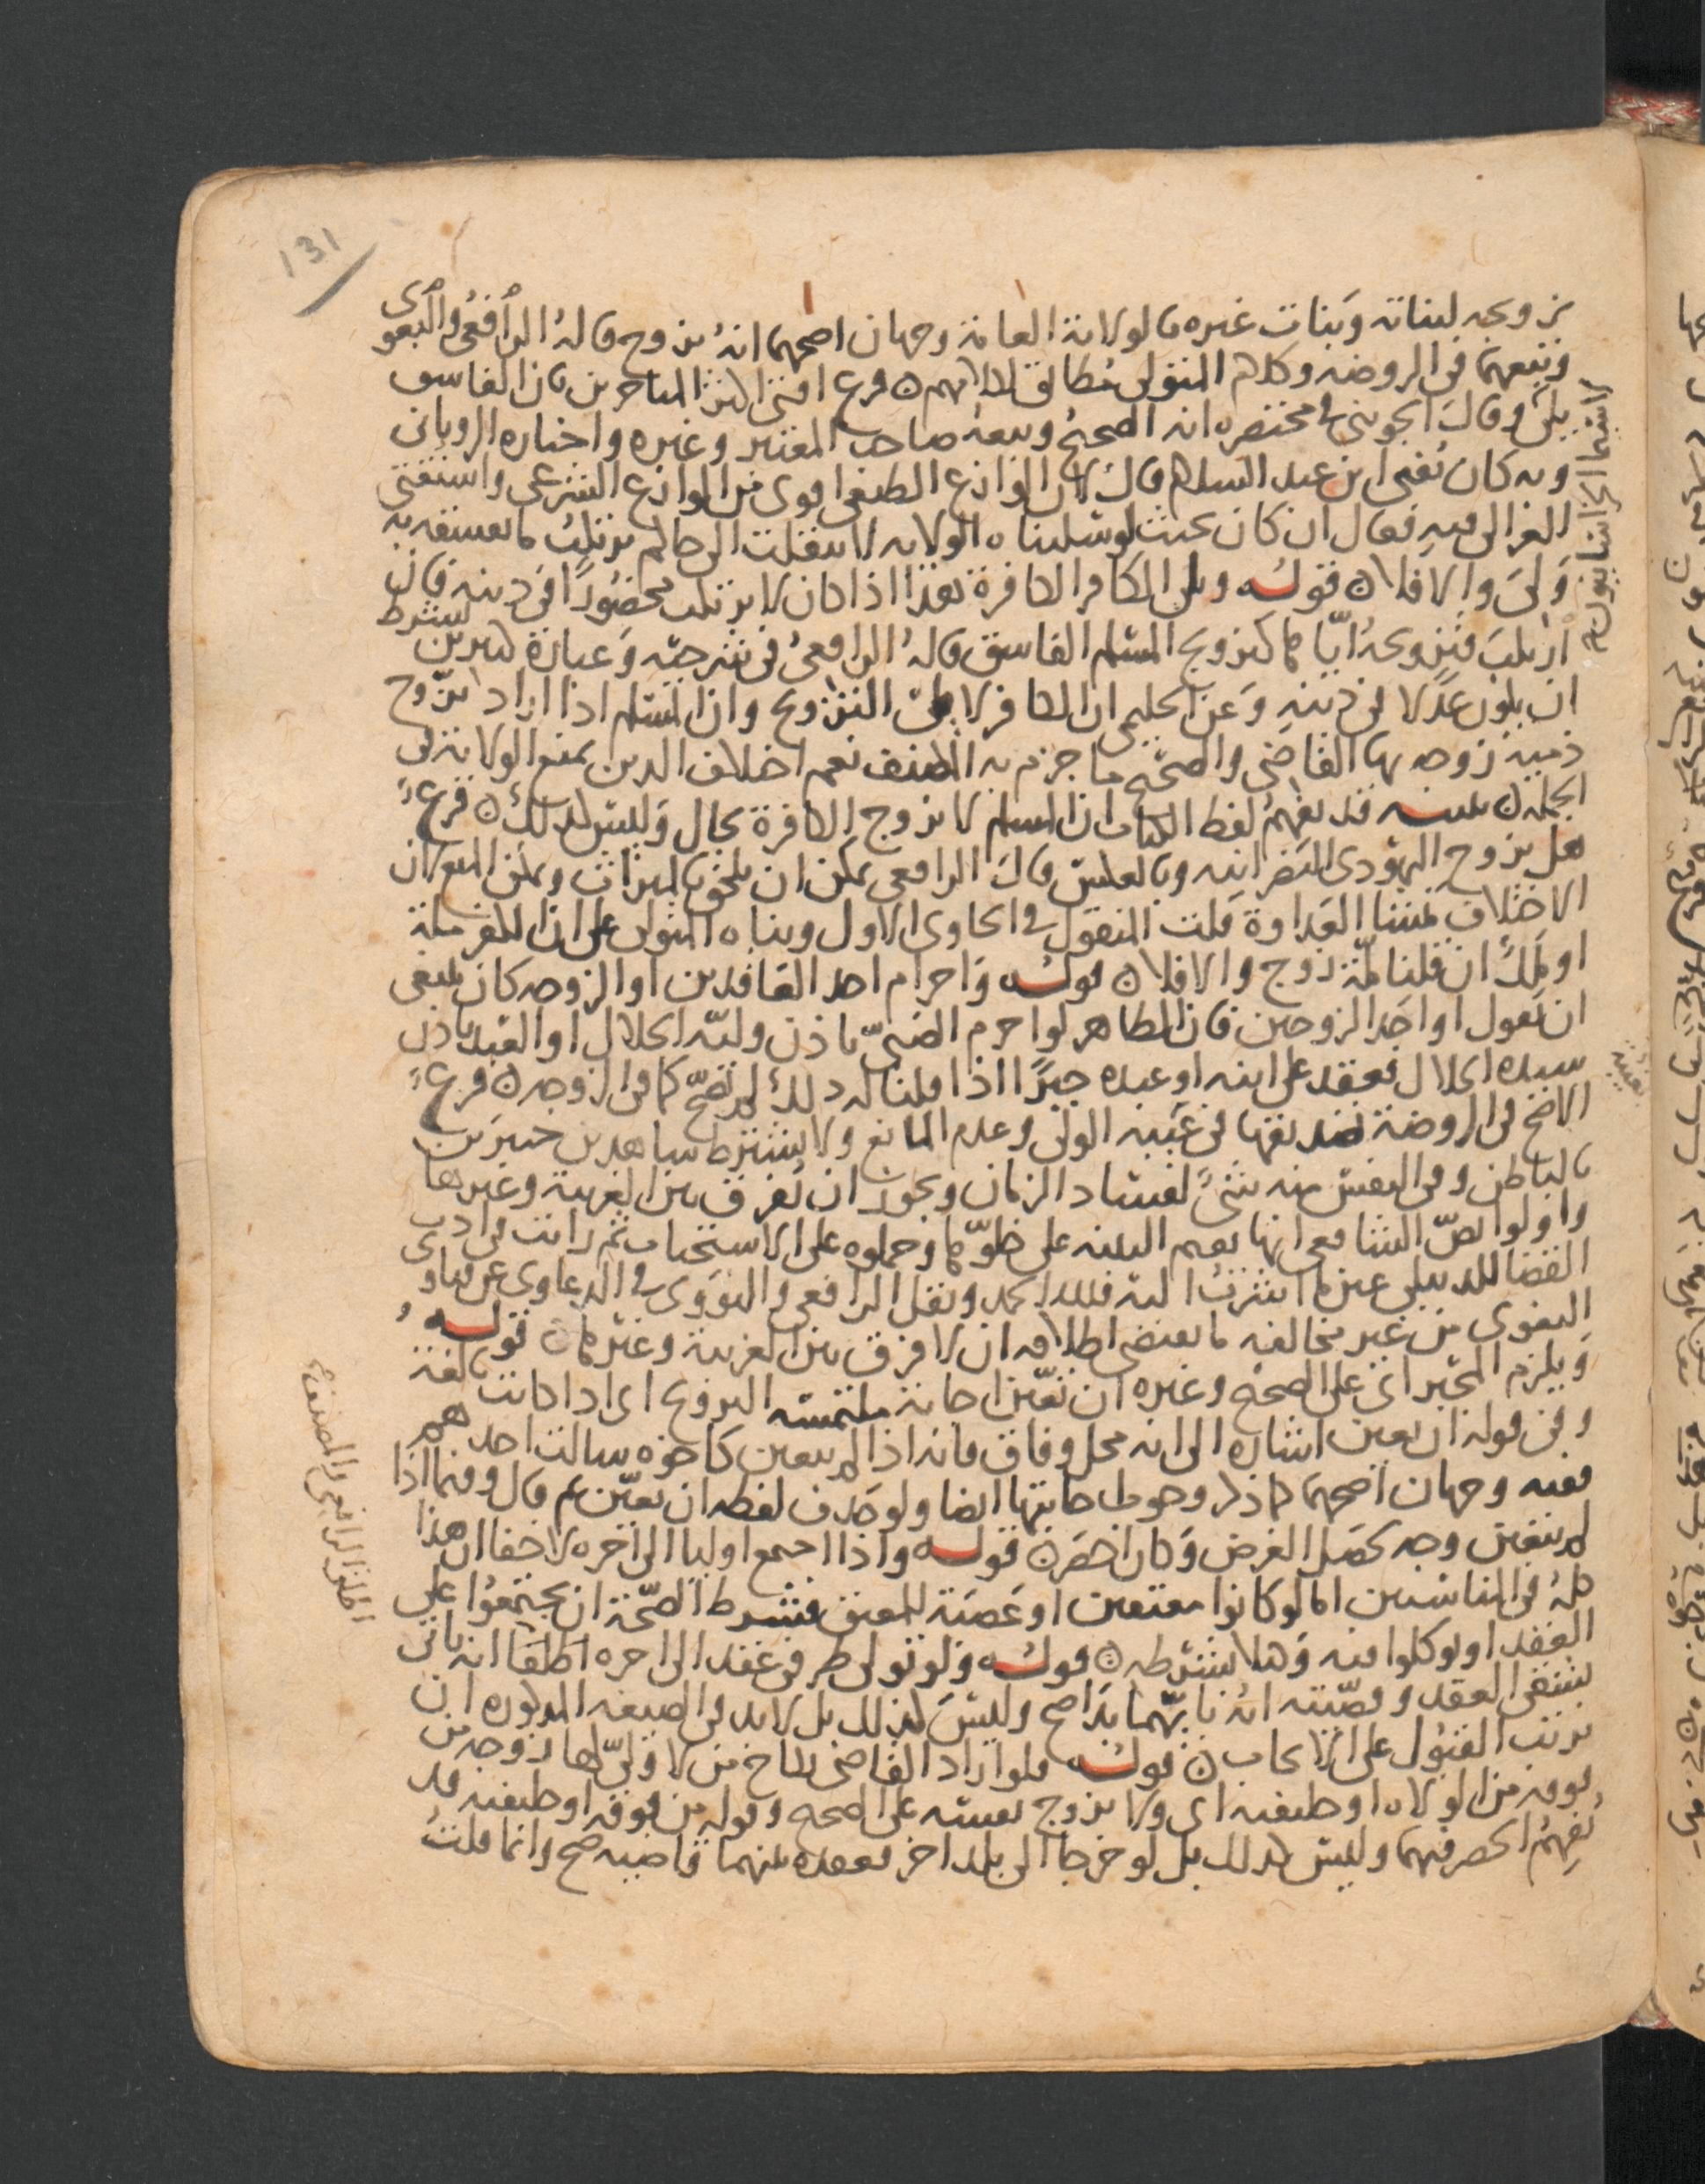 131
تزويجه لبناته وبنات غيره بالولاية العامة وجهان اصحهما انه يزوج قاله الرافعي والبغوي
وتبعهما في الروضة وكلام المتولي مطابق لكلامهم ن فرع افتى اكثر المتاخرين بان الفاسق
يلي وقال الجويني في مختصره انه الصحيح وتبعه صاحب المعتبر وغيره واختاره الروياني
وبه كان يفتي ابن عبد السلام قال لان الوازع الطبعي اقوى من الوازع الشرعي واستفتى
الغزالي فيه فقال ان كان بحيث لو سلبناه الولاية لانتقلت الى حاكم يرتكب ما نفسقه به
ولي والا فلا ن قوله ويلي الكافر الكافرة هذا اذا كان لا يرتكب محظورا في دينه فان
ارتكب فتزويجه اياها كتزويج المسلم الفاسق قاله الرافعي في شرحيه وعبارة كثيرين يشترط
ان يكون عدلا في دينه وعن الحليمي ان الكافر لا يلي التزويج وان المسلم اذا اراد تزوج
ذمية زوجه بها القاضي والصحيح ما جزم به المصنف نعم اختلاف الدين يمنع الولاية في
الجملة ن تنبيه قد يفهم لفظ الكتاب ان المسلم لا يزوج الكافرة بحال وليس كذلك ن فرع
هل يزوج اليهودي النصرانية وبالعكس قال الرافعي يمكن ان يلحق بالميراث ويمكن المنع لان
الاختلاف منشا العداوة قلت المنقول في الحاوي الاول وبناه المتولي على ان الكفر ملة
او ملل ان قلنا ملة زوج والا فلا ن قوله واحرام احد العاقدين او الزوجة كان ينبغي
ان نقول او احد الزوجين فان الظاهر لو احرم الصبي باذن وليه الحلال او العبد باذن
سيده الحلال فعقد على ابنه او عبده جبرا اذا قلنا له ذلك لم يصح كما في الزوجة ن فرع
الاصح في الروضة تصديقها في غيبة الولي وعدم المانع ولا يشترط شاهدين خبيرين
بالباطن وفي النفس منه شيء لفساد الزمان ويجوز ان نفرق بين الغريبة وغيرها
واولوا نص الشافعي انها تقيم البينة على خلوها وحملوه على الاستحباب ثم رايت في ادب
القضا للدبيلي عين ما اشرت اليه فلله الحمد ونقل الرافعي والنووي في الدعاوى عن فتاوى
البغوي من غير مخالفة ما يقتضي اطلاقه ان لا فرق بين الغريبة وغيرها ن قوله
ويلزم المجبر اي على الصحيح وغيره ان تعين اجابة ملتمسة التزويج اي اذا كانت بالغة
وفي قوله ان تعين اشارة الى انه محل وفاق فانه اذا لم يتعين كاخوة سالت احدهم
ففيه وجهان اصحهما كما ذكر وجوب اجابتها ايضا ولو حذف لفظة ان تعين ثم قال وفيما اذا
لم يتعين وجه لحصل الغرض وكان اخصر ن قوله واذا اجتمع اوليا الى اخره لا خفا ان هذا
كله في المناسبين اما لو كانوا معتقين او عصبة للمعتق فشرط الصحة ان يجتمعوا على
العقد او يوكلوا فيه وهنا لا يشترط ن قوله ولو تولى طرفي عقد الى اخره اطلقا انه ياتي
بشقي العقد وقضيته انه بايهما بدا صح وليس كذلك بل لا بد في الصيغة المذكورة ان
يرتب القبول على الايجاب ن قوله فلو اراد القاضي نكاح من لا ولي لها زوجه من
فوقه من الولاة او خليفته اي ولا يزوج نفسه على الصحيح وقوله من فوقه او خليفته قد
يفهم الحصر فيهما وليس كذلك بل لو خرجا الى بلد اخر فعقده بينهما قاضيه صح وانما قلت
لا سيما الخراسانيون صح
نفسه
اطلق الرافعي والمصنف